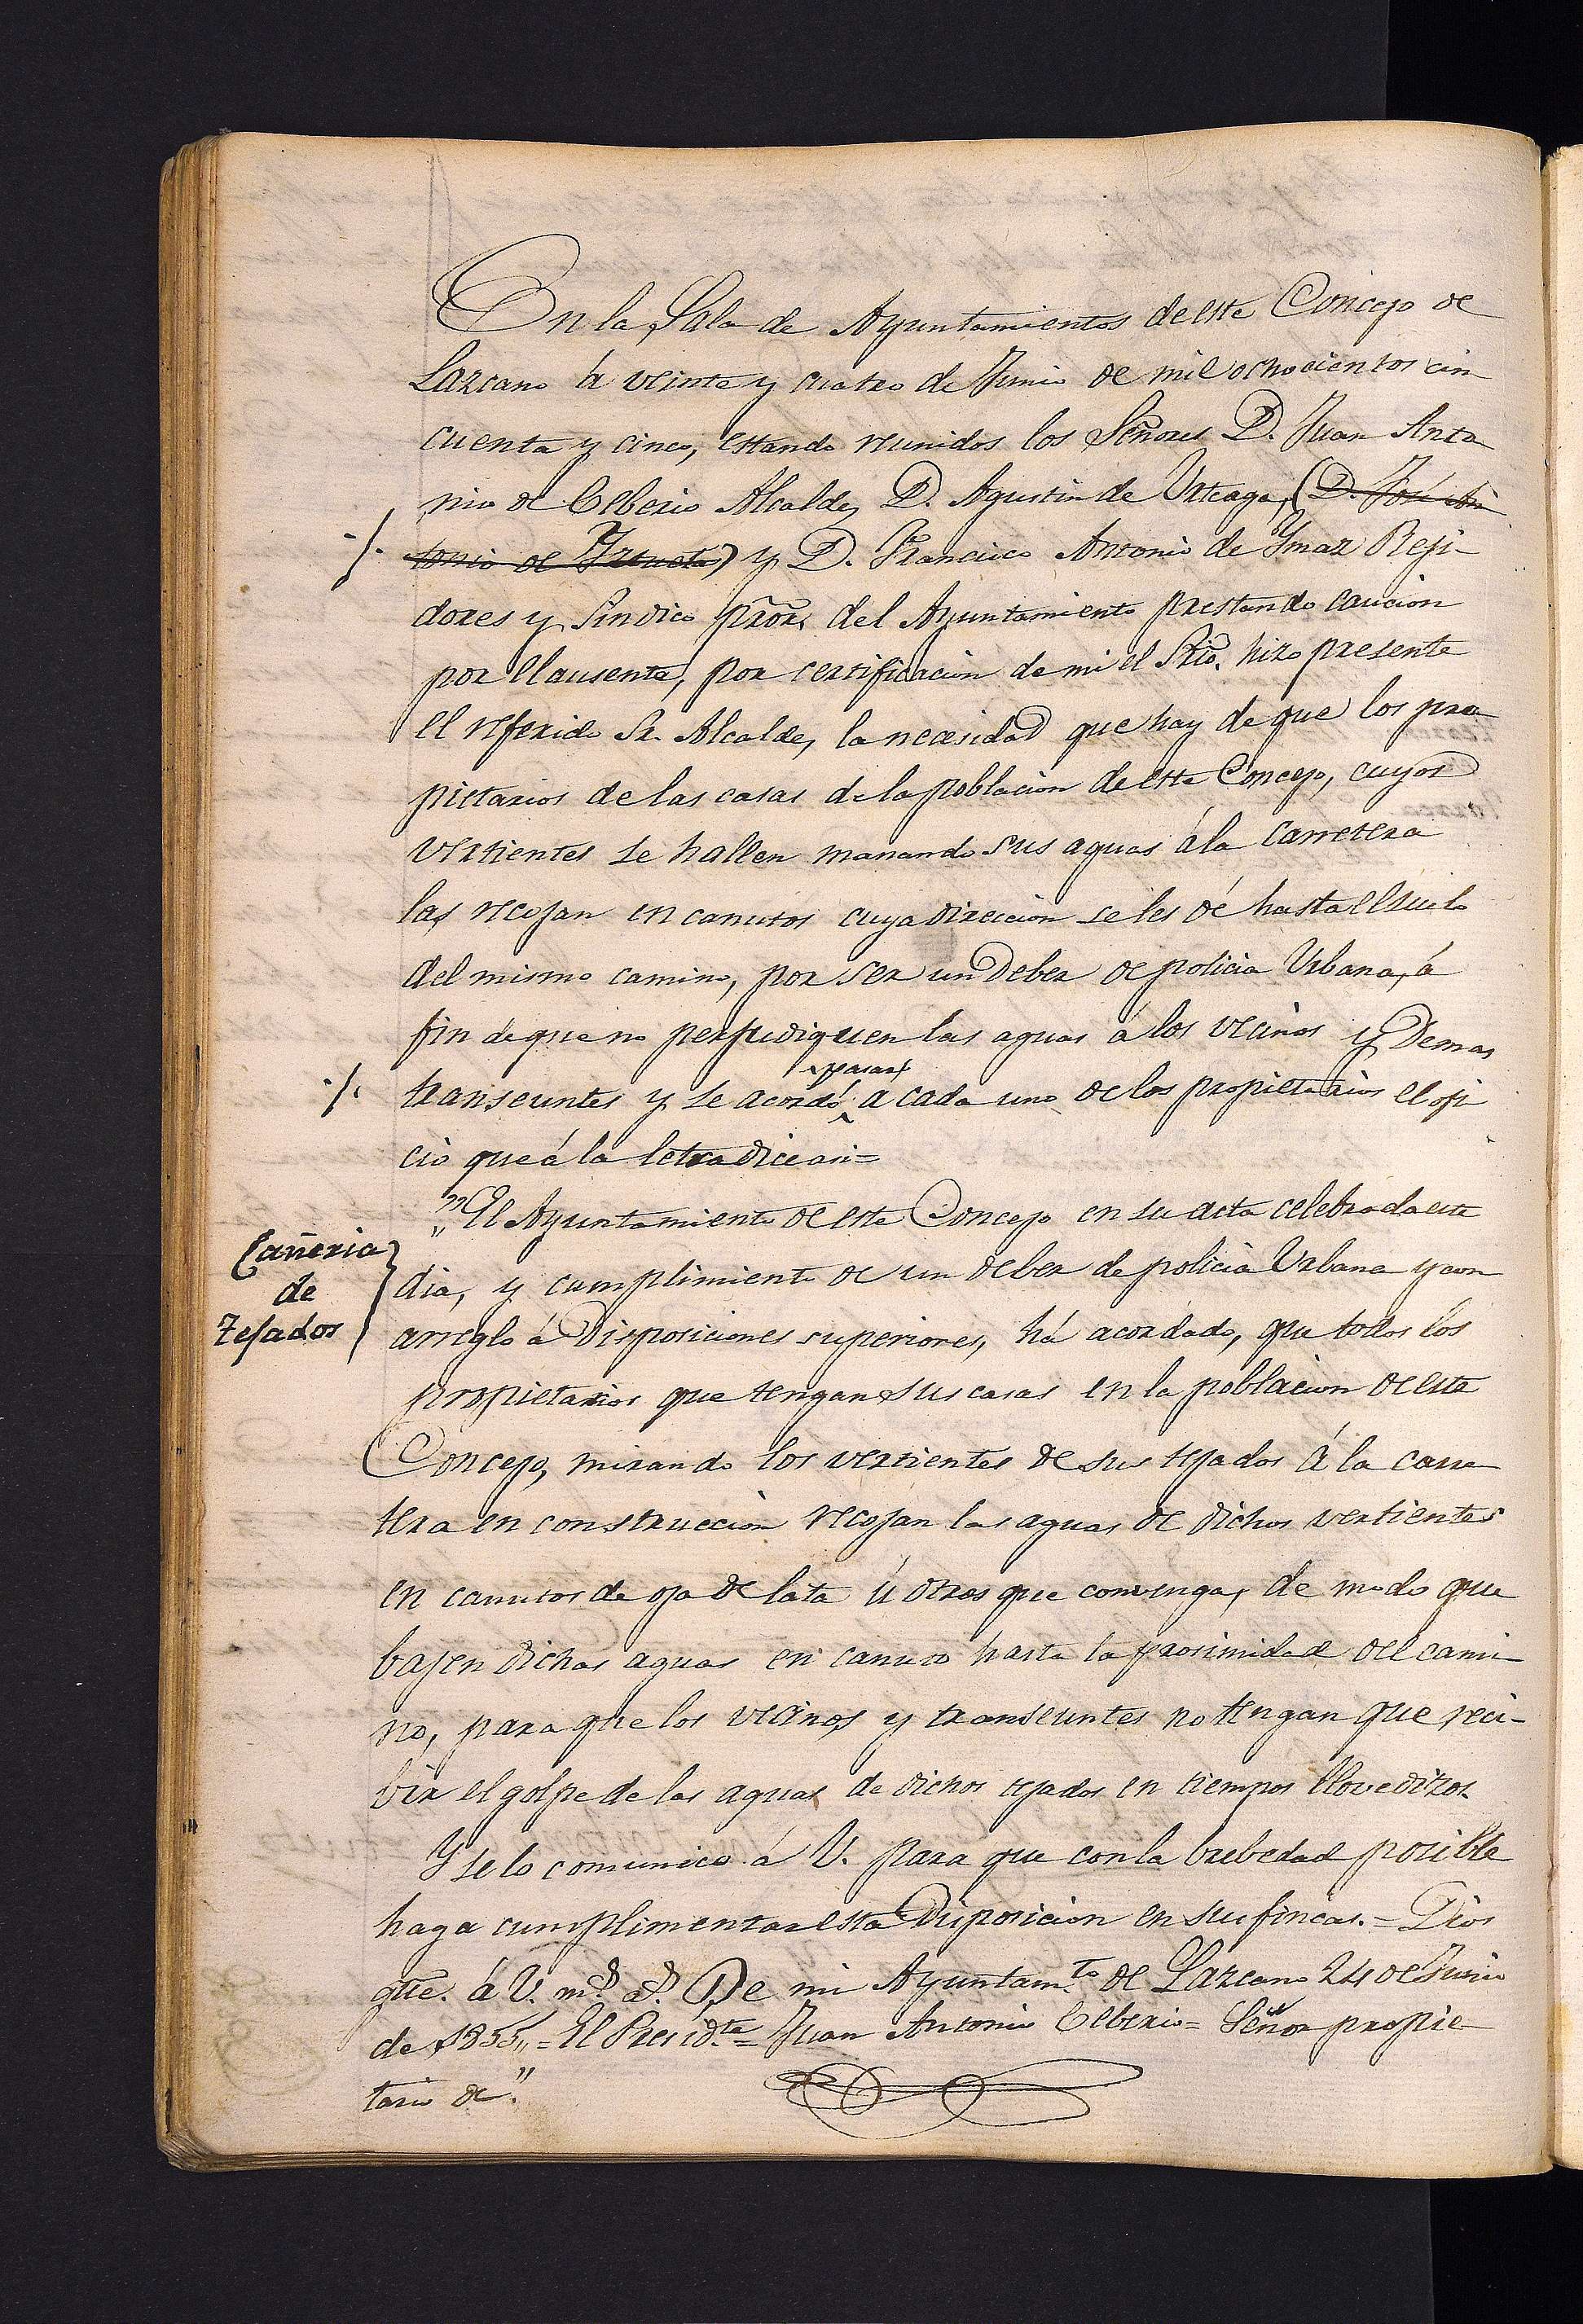 En la Sala de Ayuntamientos de este Concejo de
Lazcano á veinte y cuatro de Junio de mil ochocientos cin
cuenta y cinco, estando reunidos los Señores D. Juan Anto
nio de Celberio Alcalde, D. Agustin de Urteaga, (D. José An
-/. tonio de Iztueta) y D. Francisco Antonio de Ymaz Reji-
dores y Sindico prõr. del Ayuntamiento prestando caucion
por el ausente, por certificacion de mi el Srio. hizo presente
el referido Sr. Alcalde, la necesidad que hay de que los pro
pietarios de las casas de la poblacion de este Concejo, cuyos
vertientes se hallen manando sus aguas á la carretera
las recojan en canutos cuya direccion se les dé hasta el suelo
del mismo camino, por ser un deber de policia Urbana, á
fin de que no perjudiquen las aguas á los vecinos y demas
pasar
·/. transeuntes y se acordó a cada uno de los propietarios el ofi
cio que á la letra dice asi=
"El Ayuntamiento de este Concejo en su acta celebrada este
Cañeria
de
Tejados
dia, y cumplimiento de un deber de policia Urbana y con
arreglo á Disposiciones superiores, há acordado, que todos los
propietarios que tengan sus casas en la poblacion de este
Concejo, mirando los vertientes de sus tejados á la carre
tera en construccion recojan las aguas de dichos vertientes
en canutos de oja de lata ú otros que convenga, de modo que
bajen dichas aguas en canuto hasta la prosimidad del cami
no, para que los vecinos y transeuntes no tengan que reci-
bir el golpe de las aguas de dichos tejados en tiempos llovedizos.
Y se lo comunico á V. para que con la brebedad posible
haga cumplimentar esta Disposicion en sus fincas.= Dios
gũe. á V. m.s a.s De mi Ayuntam.to de Lazcano 24 de Junio
de 1855,,= El Presid.te= Juan Antonio Celberio= Señor propie
tario &."